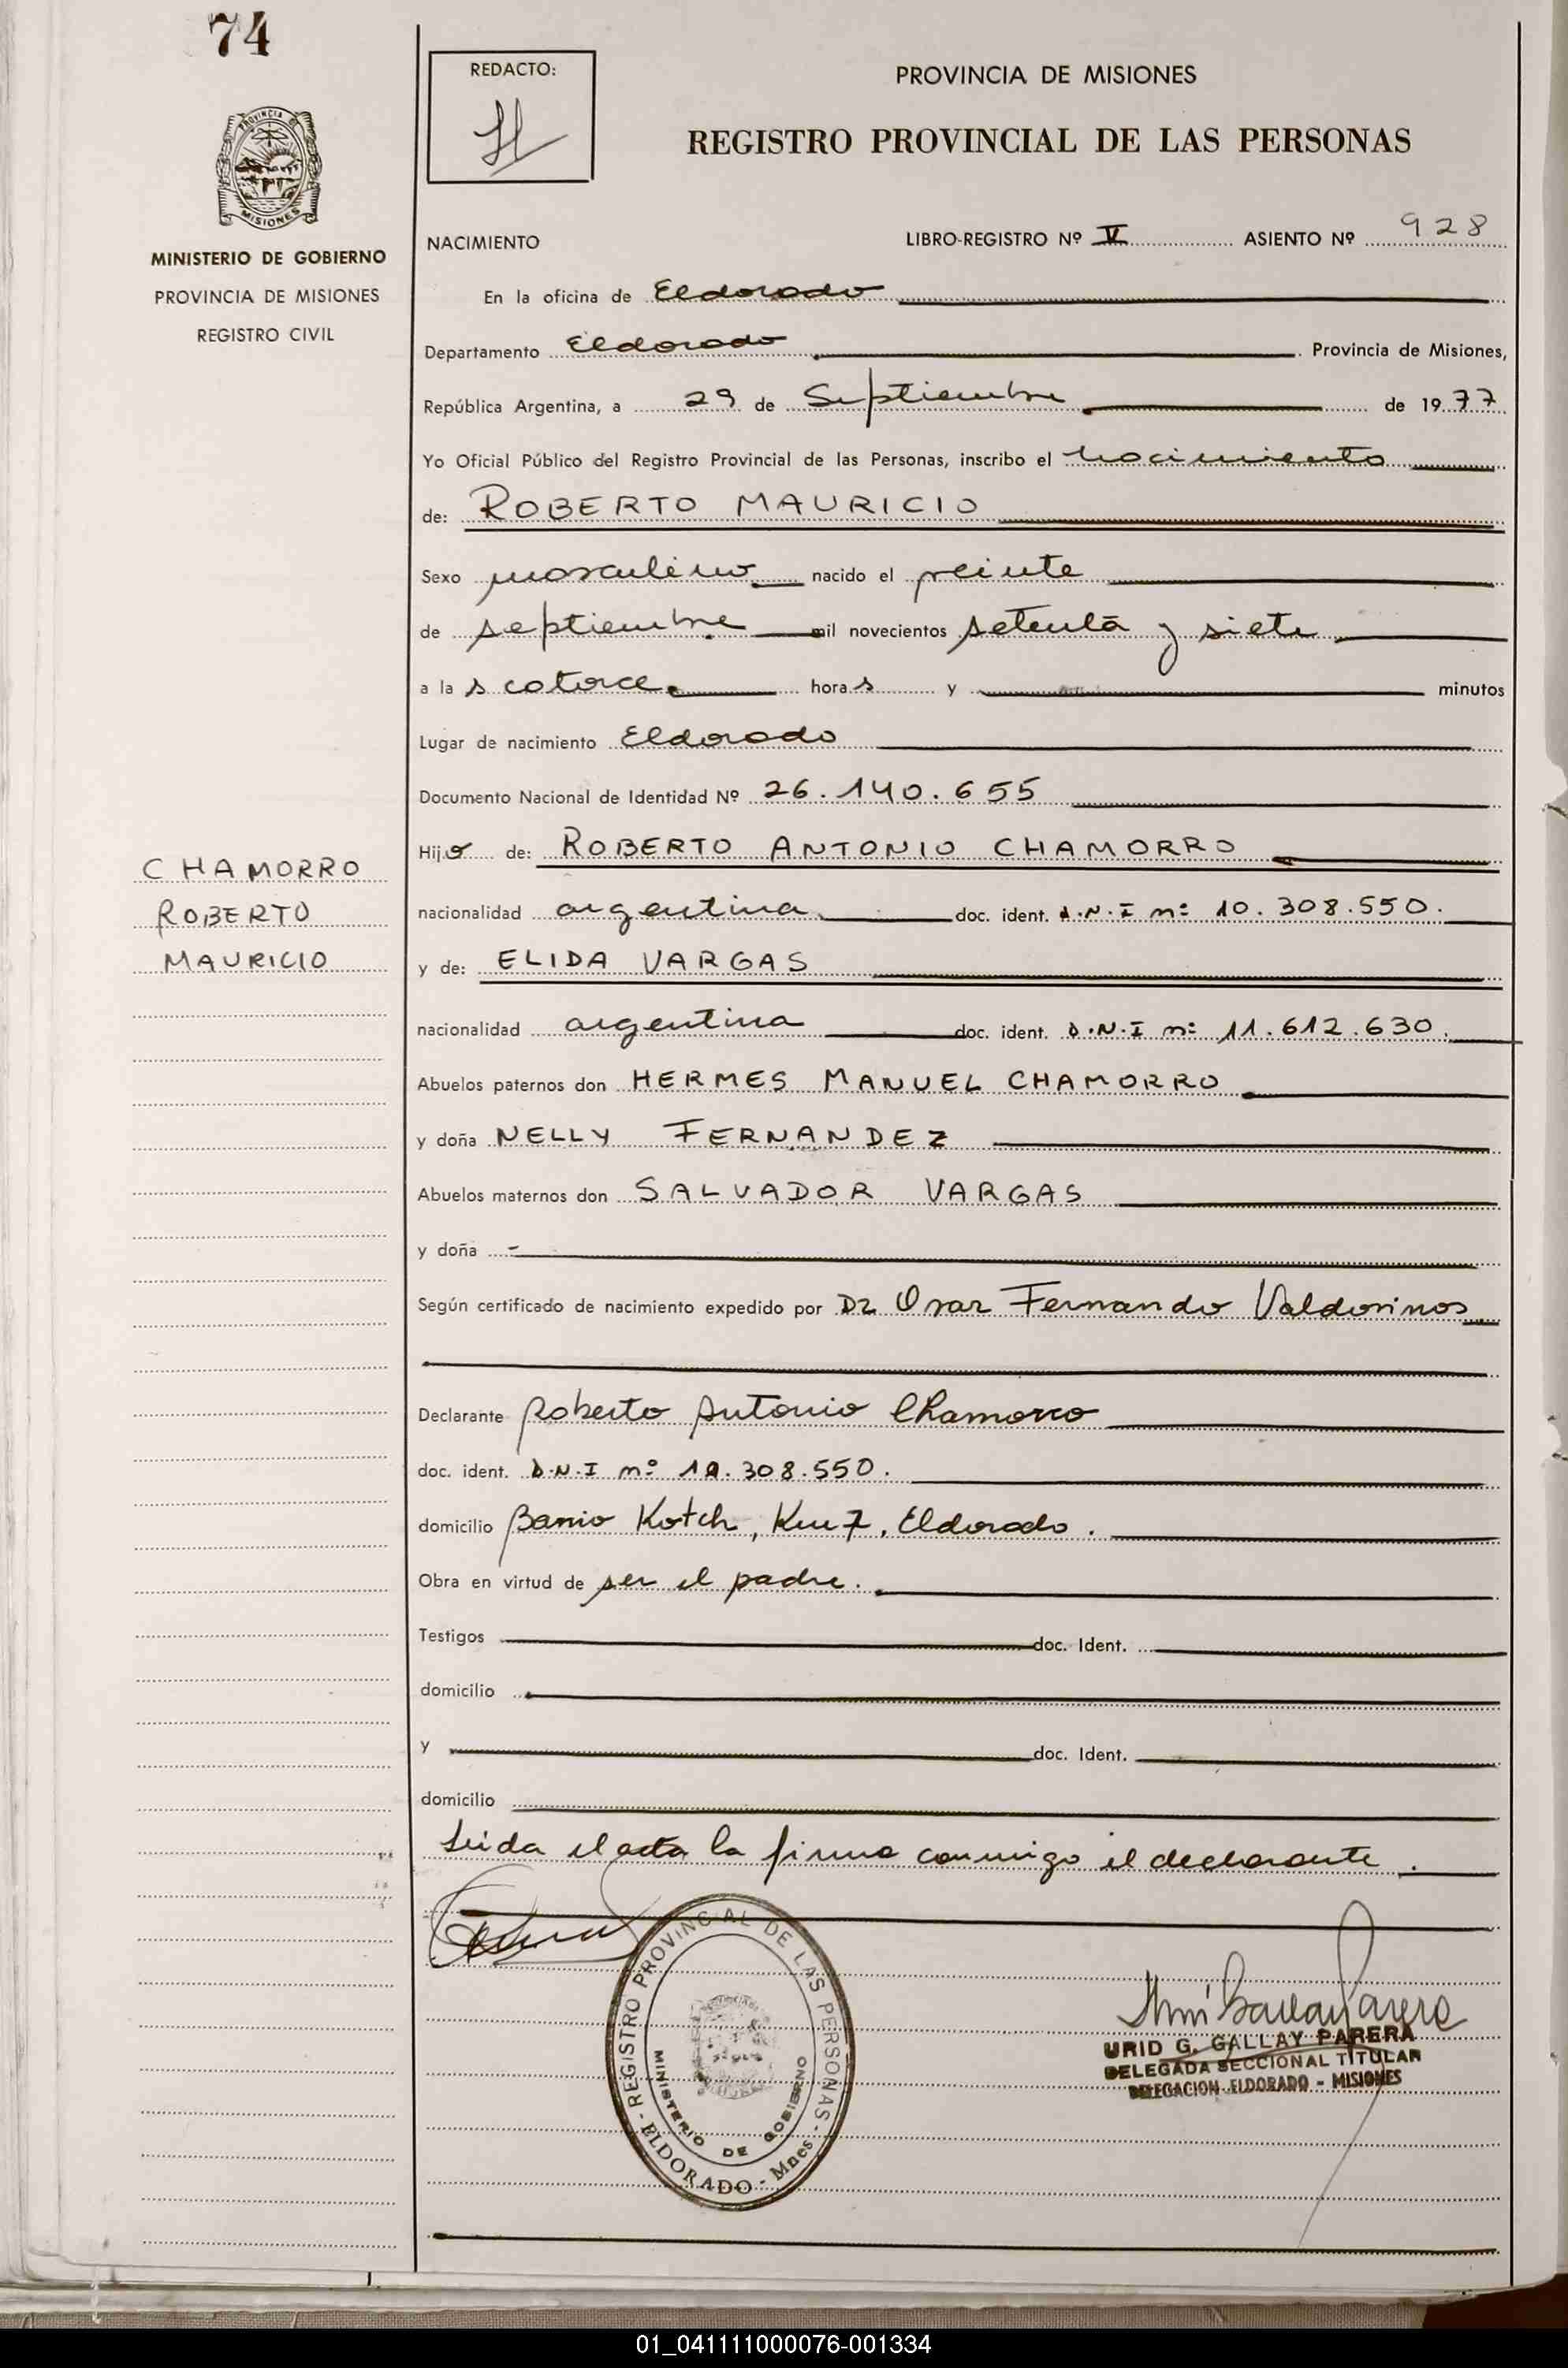 74
REDACTO:
PROVINCIA DE MISIONES
REGISTRO PROVINCIAL DE LAS PERSONAS
PROVINCIA DE
MISIONES
MINISTERIO DE GOBIERNO
PROVINCIA DE MISIONES
REGISTRO CIVIL
NACIMIENTO LIBRO-REGISTRO Nº V ASIENTO Nº 928
En la oficina de Eldorado
Departamento Eldorado Provincia de Misiones,
República Argentina, a 29 de Septiembre de 1977
Yo Oficial Público del Registro Provincial de las Personas, inscribo el nacimiento
de: ROBERTO MAURICIO
Sexo masculino nacido el veinte
de septiembre mil novecientos setenta y siete
a la s catorce horas y minutos
Lugar de nacimiento Eldorado
Documento Nacional de Identidad Nº 26.140.655
Hijo de: ROBERTO ANTONIO CHAMORRO
CHAMORRO
ROBERTO
MAURICIO
nacionalidad argentina doc. ident. D.N.I nº 10.308.550.
y de: ELIDA VARGAS
nacionalidad argentina doc. ident. D.N.I nº 11.612.630.
Abuelos paternos don HERMES MANUEL CHAMORRO
y doña NELLY FERNANDEZ
Abuelos maternos don SALVADOR VARGAS
y doña -
Según certificado de nacimiento expedido por Dr Fernando
Declarante Roberto Antonio Chamorro
doc. ident. D.N.I nº 10.308.550.
domicilio Barrio Kotch, Km 7, Eldorado.
Obra en virtud de ser el padre.
Testigos doc. Ident.
domicilio
y doc. Ident.
domicilio
Leida el acta la firma conmigo el declarante.
REGISTRO PROVINCIAL DE LAS PERSONAS - ELDORADO - Mnes
MINISTERIO DE GOBIERNO
URID G. GALLAY PARERA
DELEGADA SECCIONAL TITULAR
DELEGACION ELDORADO - MISIONES
01_041111000076-001334